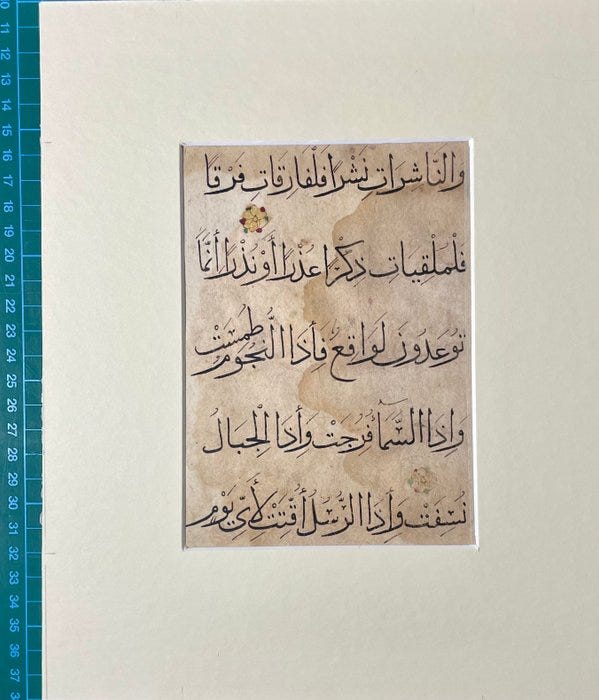 10
11
12
13
14
15
16
17
18
19
20
21
22
23
24
25
26
27
28
29
30
31
32
33
34
35
36
37
والنَّاشِرَاتِ نَشْرًا فَلْفَارِقَاتِ فَرْقًا
فَلْمُلْقِيَاتِ ذِكْرًا عُذْرًا أَوْ نُذْرًا أَنَّمَا
تُوعَدُونَ لَوَاقِعٌ فَأِذَا النُّجُومُ طُمِسَتْ
وَإِذَا السَّمَآءُ فُرِجَتْ وَأِذَا الْجِبَالُ
نُسِفَتْ وَأِذَا الرُّسُلُ أُقِّتَتْ لِأَيِّ يَوْمٍ